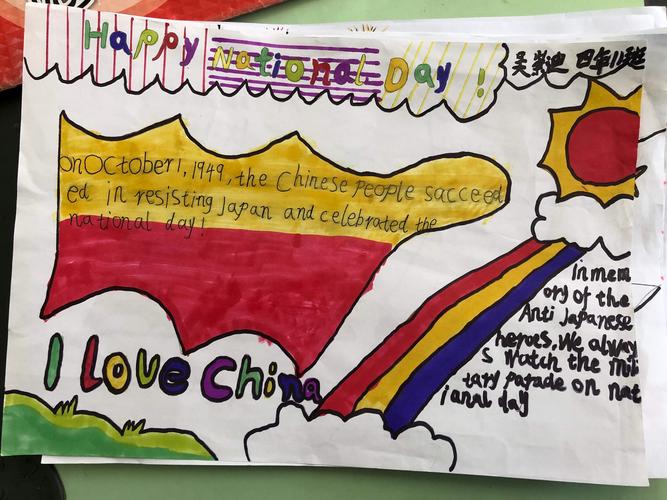 Happy National Day!
吴紫迪 四年11班
onOctober1,1949,the Chinese People succeed
ed in resisting Japan and celebrated the
national day!
In mem
ory of the
Anti Japanese
heroes. We alway
s watch the mili
tary parade on nat
ional day
I Love China